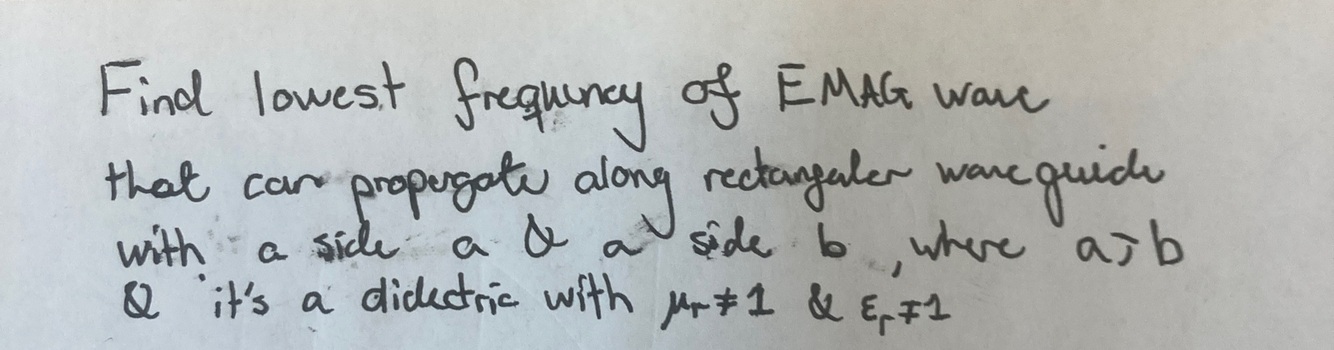 Find lowest frequency of EMAG wave
that can propergate along rectangular waveguide
with a side a & a side b, where a > b
& it's a dielectric with μr ≠ 1 & εr ≠ 1